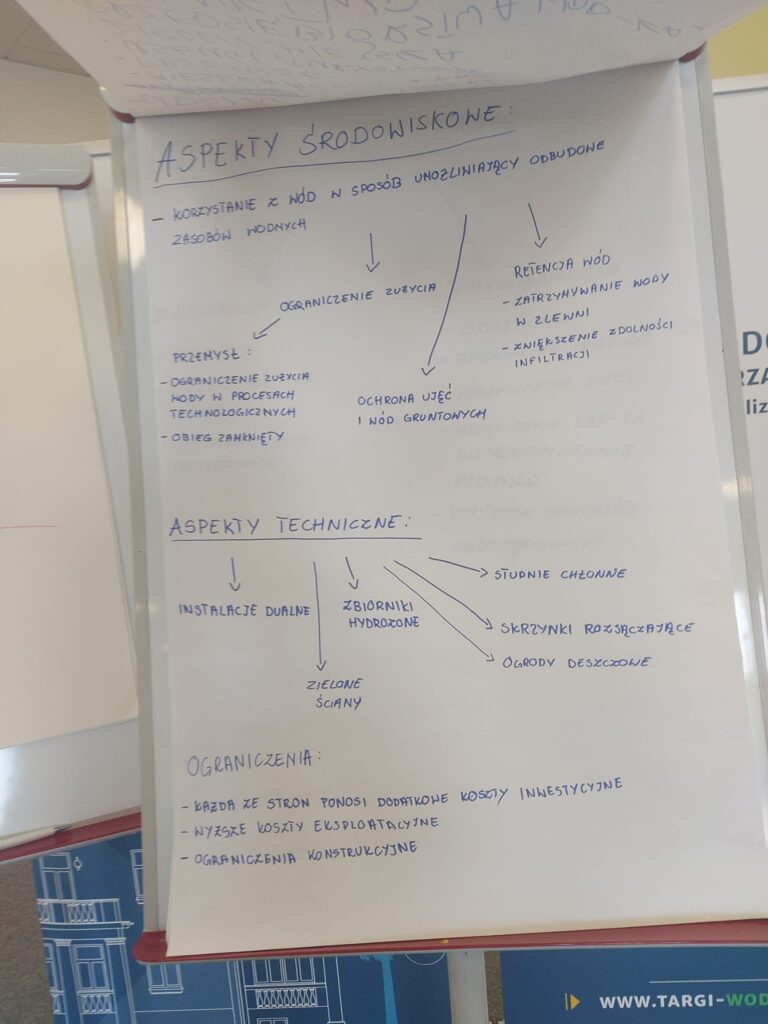 ASPEKTY ŚRODOWISKOWE:
- KORZYSTANIE Z WÓD W SPOSÓB UMOŻLIWIAJĄCY ODBUDOWE
ZASOBÓW WODNYCH
OGRANICZENIE ZUŻYCIA
PRZEMYSŁ:
- OGRANICZENIE ZUŻYCIA
WODY W PROCESACH
TECHNOLOGICZNYCH
- OBIEG ZAMKNIĘTY
OCHRONA UJĘĆ
I WÓD GRUNTOWYCH
RETENCJA WÓD
- ZATRZYMYWANIE WODY
W ZLEWNI
- ZWIĘKSZENIE ZDOLNOŚCI
INFILTRACJI
ASPEKTY TECHNICZNE:
INSTALACJE DUALNE
ZIELONE
ŚCIANY
ZBIORNIKI
HYDROZONE
STUDNIE CHŁONNE
SKRZYNKI ROZSĄCZAJĄCE
OGRODY DESZCZOWE
OGRANICZENIA:
- KAŻDA ZE STRON PONOSI DODATKOWE KOSZTY INWESTYCYJNE
- WYŻSZE KOSZTY EKSPLOATACYJNE
- OGRANICZENIA KONSTRUKCYJNE
WWW.TARGI-WOD